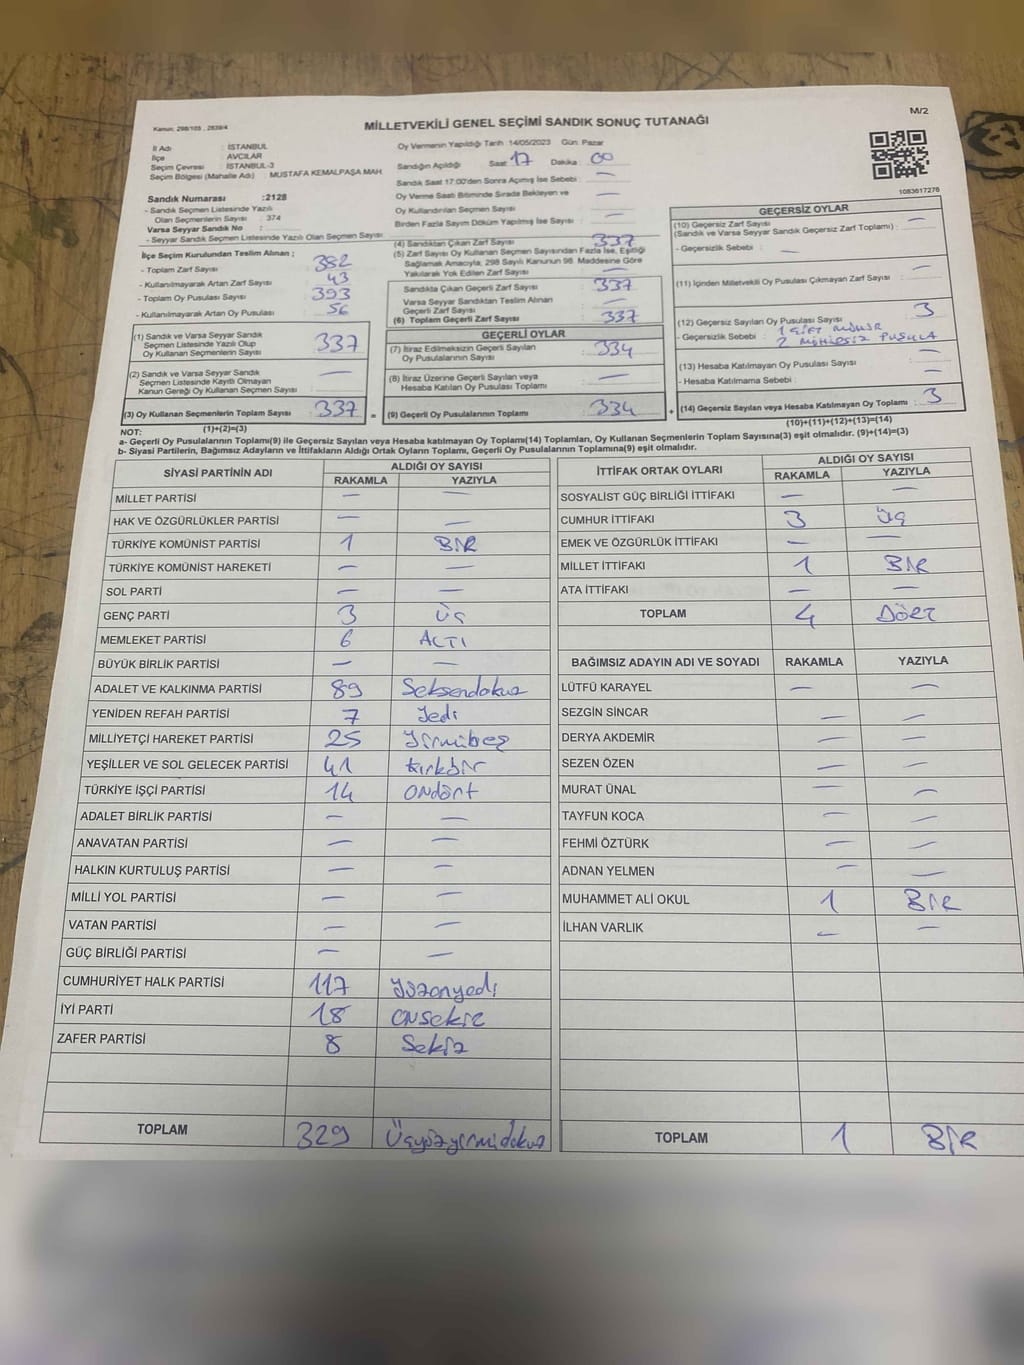 Kanun: 298/105 , 2839/4
MİLLETVEKİLİ GENEL SEÇİMİ SANDIK SONUÇ TUTANAĞI
M/2
İl Adı : İSTANBUL
İlçe : AVCILAR
Seçim Çevresi : İSTANBUL-3
Seçim Bölgesi (Mahalle Adı) MUSTAFA KEMALPAŞA MAH.
Sandık Numarası :2128
- Sandık Seçmen Listesinde Yazılı
Olan Seçmenlerin Sayısı : 374
Varsa Seyyar Sandık No :
- Seyyar Sandık Seçmen Listesinde Yazılı Olan Seçmen Sayısı
İlçe Seçim Kurulundan Teslim Alınan ;
- Toplam Zarf Sayısı
- Kullanılmayarak Artan Zarf Sayısı : 43
- Toplam Oy Pusulası Sayısı : 393
- Kullanılmayarak Artan Oy Pusulası : 56
(1) Sandık ve Varsa Seyyar Sandık
Seçmen Listesinde Yazılı Olup
Oy Kullanan Seçmenlerin Sayısı : 337
(2) Sandık ve Varsa Seyyar Sandık
Seçmen Listesinde Kayıtlı Olmayan
Kanun Gereği Oy Kullanan Seçmen Sayısı : —
(3) Oy Kullanan Seçmenlerin Toplam Sayısı : 337 =
(1)+(2)=(3)
Oy Vermenin Yapıldığı Tarih :14/05/2023 Gün: Pazar
Sandığın Açıldığı Saat: 17 Dakika : 00
Sandık Saat 17:00'den Sonra Açılmış İse Sebebi : —
Oy Verme Saati Bitiminde Sırada Bekleyen ve
Oy Kullandırılan Seçmen Sayısı : —
Birden Fazla Sayım Döküm Yapılmış İse Sayısı : —
(4) Sandıktan Çıkan Zarf Sayısı : 337
(5) Zarf Sayısı Oy Kullanan Seçmen Sayısından Fazla İse, Eşitliği
Sağlamak Amacıyla, 298 Sayılı Kanunun 98. Maddesine Göre
Yakılarak Yok Edilen Zarf Sayısı : —
Sandıkta Çıkan Geçerli Zarf Sayısı : 337
Varsa Seyyar Sandıktan Teslim Alınan
Geçerli Zarf Sayısı : —
(6) Toplam Geçerli Zarf Sayısı : 337
GEÇERLİ OYLAR
(7) İtiraz Edilmeksizin Geçerli Sayılan
Oy Pusulalarının Sayısı : 334
(8) İtiraz Üzerine Geçerli Sayılan veya
Hesaba Katılan Oy Pusulası Toplamı : —
(9) Geçerli Oy Pusulalarının Toplamı : 334 +
1083617278
GEÇERSİZ OYLAR
(10) Geçersiz Zarf Sayısı
(Sandık ve Varsa Seyyar Sandık Geçersiz Zarf Toplamı) : —
- Geçersizlik Sebebi : —
(11) İçinden Milletvekili Oy Pusulası Çıkmayan Zarf Sayısı : —
(12) Geçersiz Sayılan Oy Pusulası Sayısı : 3
- Geçersizlik Sebebi : 1 ÇİFT MÜHÜR
2 MÜHÜRSÜZ PUSULA
(13) Hesaba Katılmayan Oy Pusulası Sayısı : —
- Hesaba Katılmama Sebebi : —
(14) Geçersiz Sayılan veya Hesaba Katılmayan Oy Toplamı : 3
(10)+(11)+(12)+(13)=(14)
NOT:
a- Geçerli Oy Pusulalarının Toplamı(9) ile Geçersiz Sayılan veya Hesaba katılmayan Oy Toplamı(14) Toplamları, Oy Kullanan Seçmenlerin Toplam Sayısına(3) eşit olmalıdır. (9)+(14)=(3)
b- Siyasi Partilerin, Bağımsız Adayların ve İttifakların Aldığı Ortak Oyların Toplamı, Geçerli Oy Pusulalarının Toplamına(9) eşit olmalıdır.
SİYASİ PARTİNİN ADI ALDIĞI OY SAYISI
RAKAMLA YAZIYLA
MİLLET PARTİSİ — —
HAK VE ÖZGÜRLÜKLER PARTİSİ — —
TÜRKİYE KOMÜNİST PARTİSİ 1 BİR
TÜRKİYE KOMÜNİST HAREKETİ — —
SOL PARTİ — —
GENÇ PARTİ 3 Üç
MEMLEKET PARTİSİ 6 ALTI
BÜYÜK BİRLİK PARTİSİ — —
ADALET VE KALKINMA PARTİSİ 89 Seksendokuz
YENİDEN REFAH PARTİSİ 7 Yedi
MİLLİYETÇİ HAREKET PARTİSİ 25 Yirmibeş
YEŞİLLER VE SOL GELECEK PARTİSİ 41 Kırkbir
TÜRKİYE İŞÇİ PARTİSİ 14 Ondört
ADALET BİRLİK PARTİSİ — —
ANAVATAN PARTİSİ — —
HALKIN KURTULUŞ PARTİSİ — —
MİLLİ YOL PARTİSİ — —
VATAN PARTİSİ — —
GÜÇ BİRLİĞİ PARTİSİ — —
CUMHURİYET HALK PARTİSİ 117 Yüzonyedi
İYİ PARTİ 18 ONSekiz
ZAFER PARTİSİ 8 Sekiz
TOPLAM 329 Üçyüzyirmidokuz
İTTİFAK ORTAK OYLARI ALDIĞI OY SAYISI
RAKAMLA YAZIYLA
SOSYALİST GÜÇ BİRLİĞİ İTTİFAKI — —
CUMHUR İTTİFAKI 3 Üç
EMEK VE ÖZGÜRLÜK İTTİFAKI — —
MİLLET İTTİFAKI 1 BİR
ATA İTTİFAKI — —
TOPLAM 4 DÖRT
BAĞIMSIZ ADAYIN ADI VE SOYADI RAKAMLA YAZIYLA
LÜTFÜ KARAYEL — —
SEZGİN SİNCAR — —
DERYA AKDEMİR — —
SEZEN ÖZEN — —
MURAT ÜNAL — —
TAYFUN KOCA — —
FEHMİ ÖZTÜRK — —
ADNAN YELMEN — —
MUHAMMET ALİ OKUL 1 BİR
İLHAN VARLIK — —
TOPLAM 1 BİR